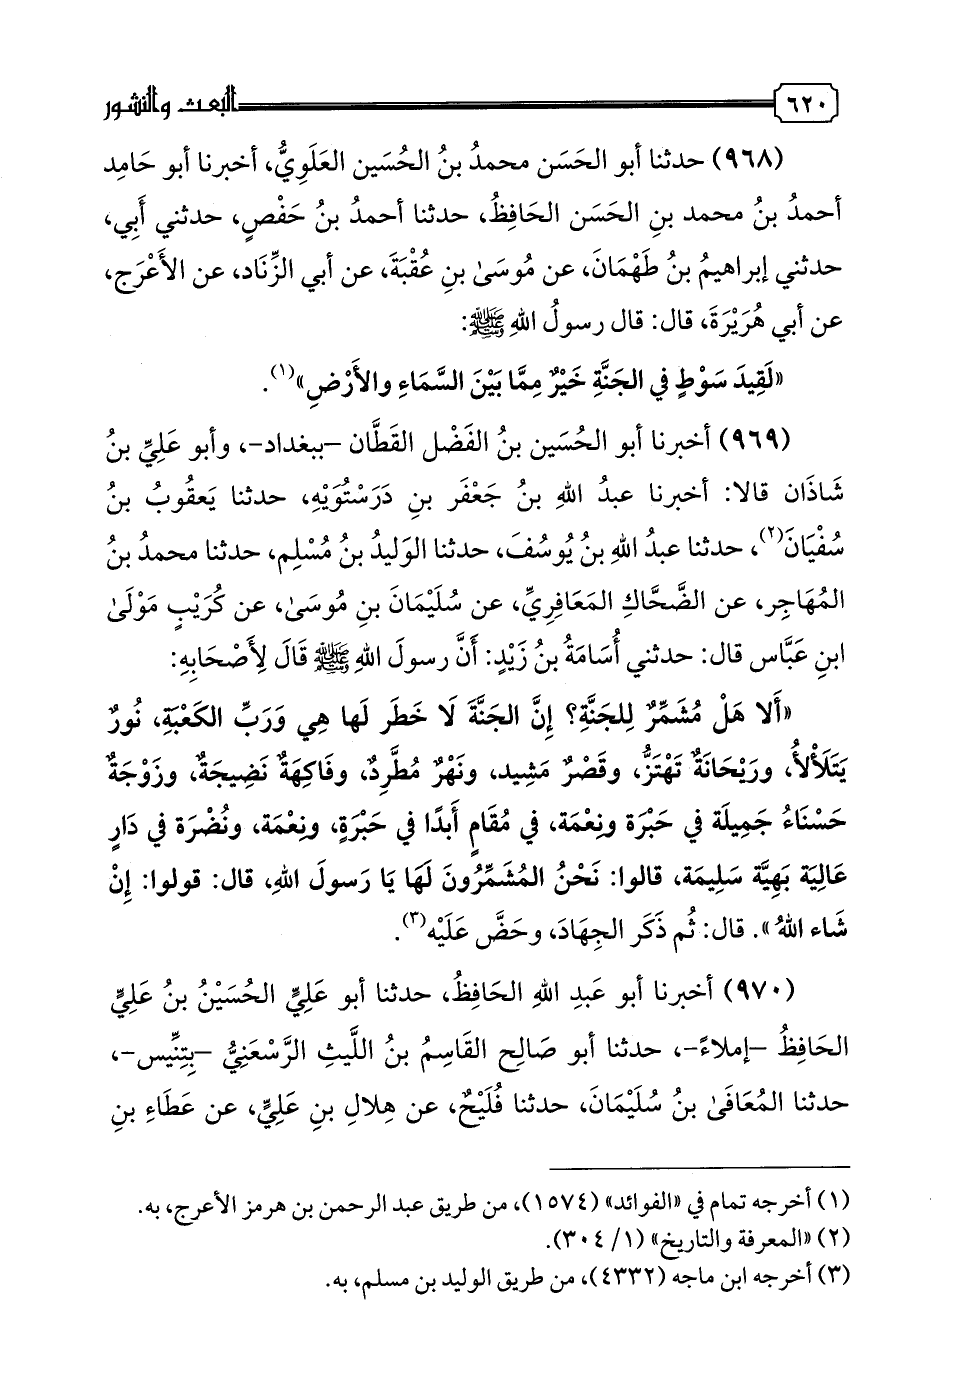 ٦٢٠ البعث والنشور
(٩٦٨) حدثنا أبو الحَسَن محمدُ بنُ الحُسَين العَلَوِيُّ، أخبرنا أبو حَامِد
أحمدُ بنُ محمد بنِ الحَسَن الحَافِظُ، حدثنا أحمدُ بنُ حَفْصٍ، حدثني أَبِي،
حدثني إبراهيمُ بنُ طَهْمَانَ، عن مُوسَىٰ بنِ عُقْبَةَ، عن أبي الزِّنَاد، عن الأَعْرَج،
عن أبي هُرَيْرَةَ، قال: قال رسولُ اللهِ ﷺ:
«لَقِيدَ سَوْطٍ في الجَنَّةِ خَيْرٌ مِمَّا بَيْنَ السَّمَاءِ والأَرْضِ»(١).
(٩٦٩) أخبرنا أبو الحُسَين بنُ الفَضْل القَطَّان –ببغداد–، وأبو عَلِيِّ بنُ
شَاذَان قالا: أخبرنا عبدُ اللهِ بنُ جَعْفَر بنِ دَرَسْتُوَيْهِ، حدثنا يَعقُوبُ بنُ
سُفْيَانَ(٢)، حدثنا عبدُ اللهِ بنُ يُوسُفَ، حدثنا الوَليدُ بنُ مُسْلِم، حدثنا محمدُ بنُ
المُهَاجِر، عن الضَّحَّاكِ المَعَافِرِيِّ، عن سُلَيْمَانَ بنِ مُوسَىٰ، عن كُرَيْبٍ مَوْلَىٰ
ابنِ عَبَّاس قال: حدثني أُسَامَةُ بنُ زَيْدٍ: أَنَّ رسولَ اللهِ ﷺ قَالَ لِأَصْحَابِهِ:
«أَلا هَلْ مُشَمِّرٌ لِلجَنَّةِ؟ إِنَّ الجَنَّةَ لَا خَطَر لَها هِي وَرَبِّ الكَعْبَةِ، نُورٌ
يَتَلَأْلأُ، ورَيْحَانَةٌ تَهْتَزُّ، وقَصْرٌ مَشِيد، ونَهْرٌ مُطَّرِدٌ، وفَاكِهَةٌ نَضِيجَةٌ، وزَوْجَةٌ
حَسْنَاءُ جَمِيلَة في حَبْرَة ونِعْمَة، في مُقَامٍ أَبدًا في حَبْرَةٍ، ونِعْمَة، ونُضْرَة في دَارٍ
عَالِيَة بَهِيَّة سَلِيمَة، قالوا: نَحْنُ المُشَمِّرُونَ لَهَا يَا رَسولَ اللهِ، قال: قولوا: إِنْ
شَاء اللهُ». قال: ثُم ذَكَر الجِهَادَ، وحَضَّ عَلَيْه(٣).
(٩٧٠) أخبرنا أبو عَبدِ اللهِ الحَافِظُ، حدثنا أبو عَلِيٍّ الحُسَيْنُ بنُ عَلِيٍّ
الحَافِظُ –إملاءً–، حدثنا أبو صَالِح القَاسِمُ بنُ اللَّيثِ الرَّسْعَنِيُّ –بِتِنِّيس–،
حدثنا المُعَافَىٰ بنُ سُلَيْمَانَ، حدثنا فُلَيْحٌ، عن هِلالِ بنِ عَلِيٍّ، عن عَطَاءِ بنِ
(١) أخرجه تمام في «الفوائد» (١٥٧٤)، من طريق عبد الرحمن بن هرمز الأعرج، به.
(٢) «المعرفة والتاريخ» (١/ ٣٠٤).
(٣) أخرجه ابن ماجه (٤٣٣٢)، من طريق الوليد بن مسلم، به.